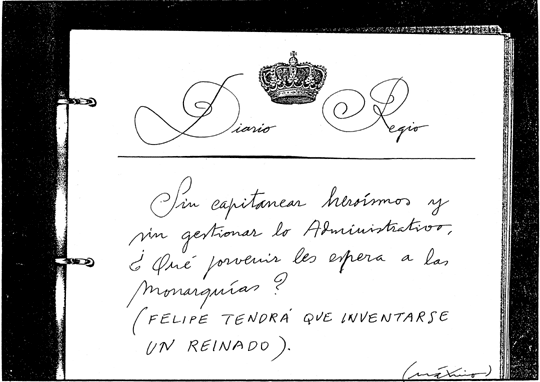 Diario Regio
Sin capitanear heroísmos y
sin gestionar lo Administrativo,
¿Qué porvenir les espera a las
Monarquías?
(FELIPE TENDRÁ QUE INVENTARSE
UN REINADO).
(máximo)